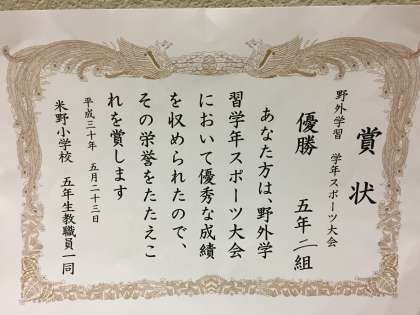 賞状
野外学習 学年スポーツ大会
優勝 五年二組
あなた方は、野外学
習学年スポーツ大会
において優秀な成績
を収められたので、
その栄誉をたたえこ
れを賞します
平成三十年 五月二十三日
米野小学校 五年生教職員一同